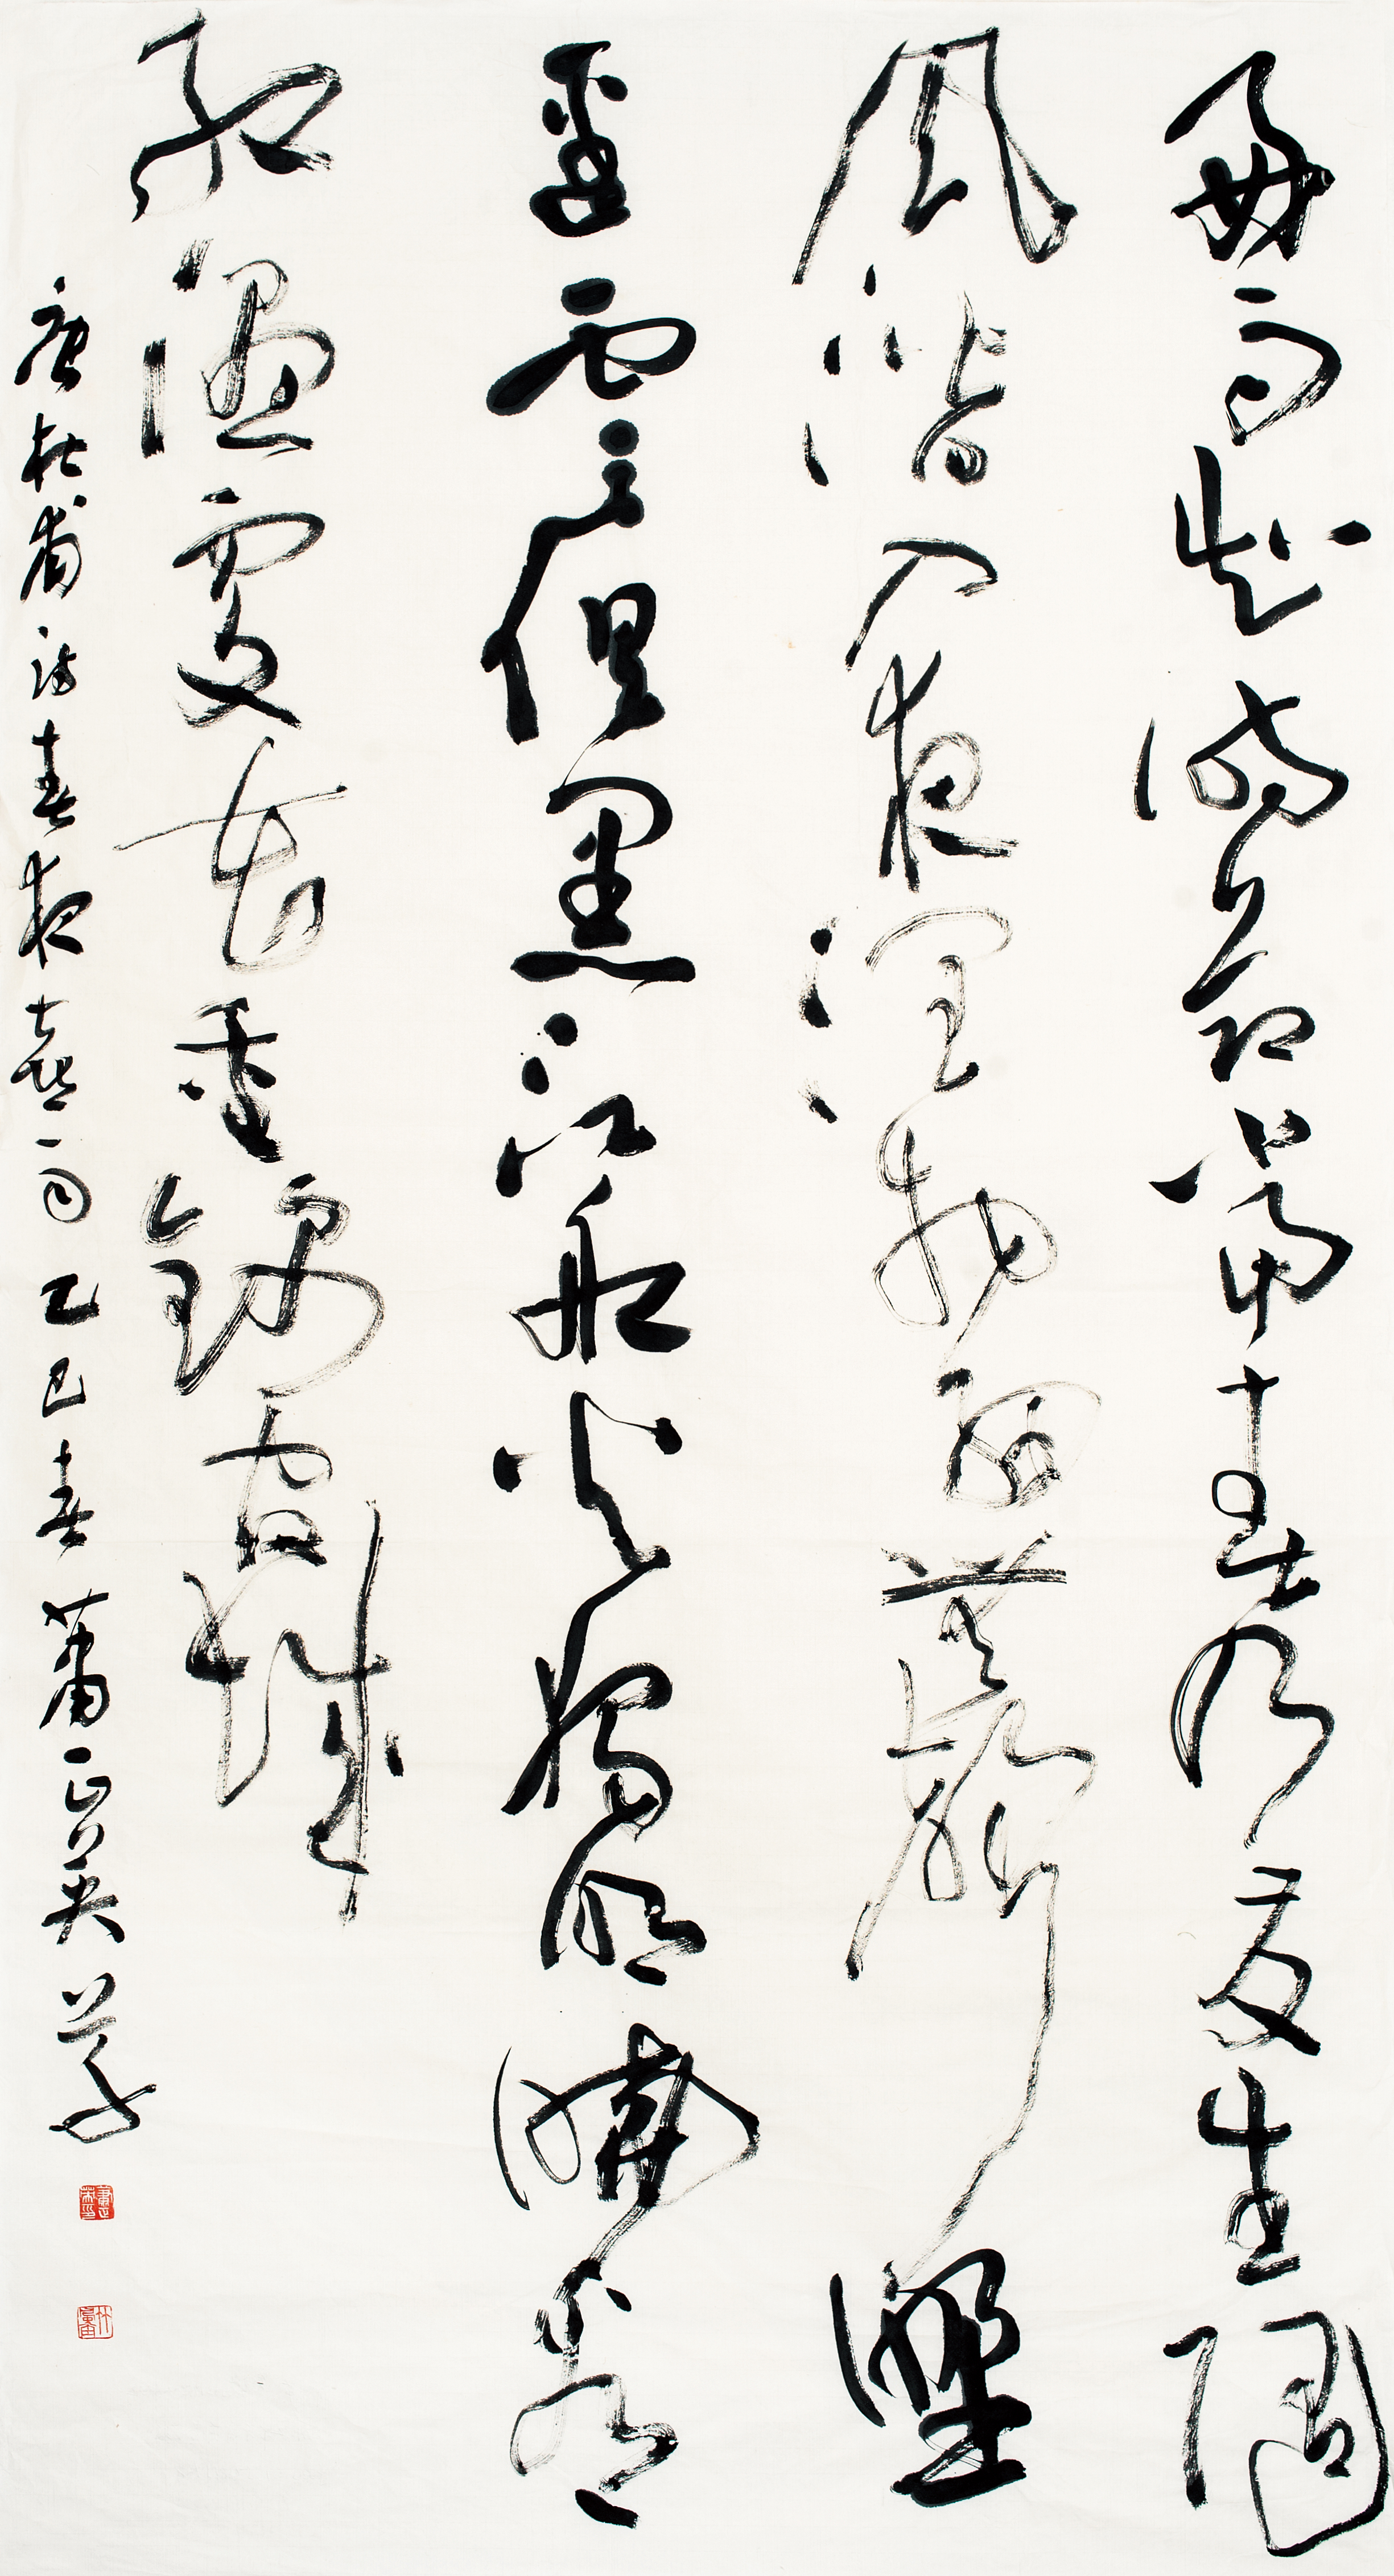 好雨知時節當春乃發生隨
風潛入夜潤物細無聲野
徑雲俱黑江船火獨明曉看
紅濕處花重錦官城
唐杜甫詩春夜喜雨 乙巳春 蕭正英草